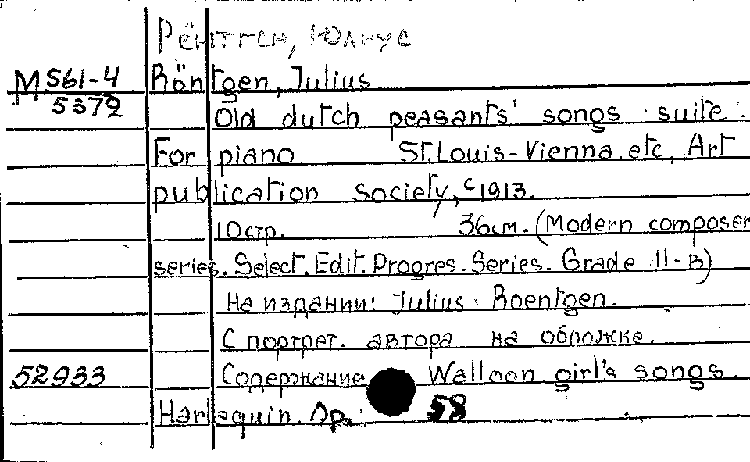 Рёнтген, Юлиус
М 561-4 Röntgen, Julius
5372
Old dutch peasants' songs suite.
For piano St. Louis-Vienna. etc, Art
publication society, c1913.
10стр. 36см. (Modern composer
series. Select. Edit. Progres. Series. Grade II-B)
На издании: Julius Roentgen.
С портрет. автора на обложке.
52933 Содержание Walloon girl's songs.
Harlequin. Op. 58